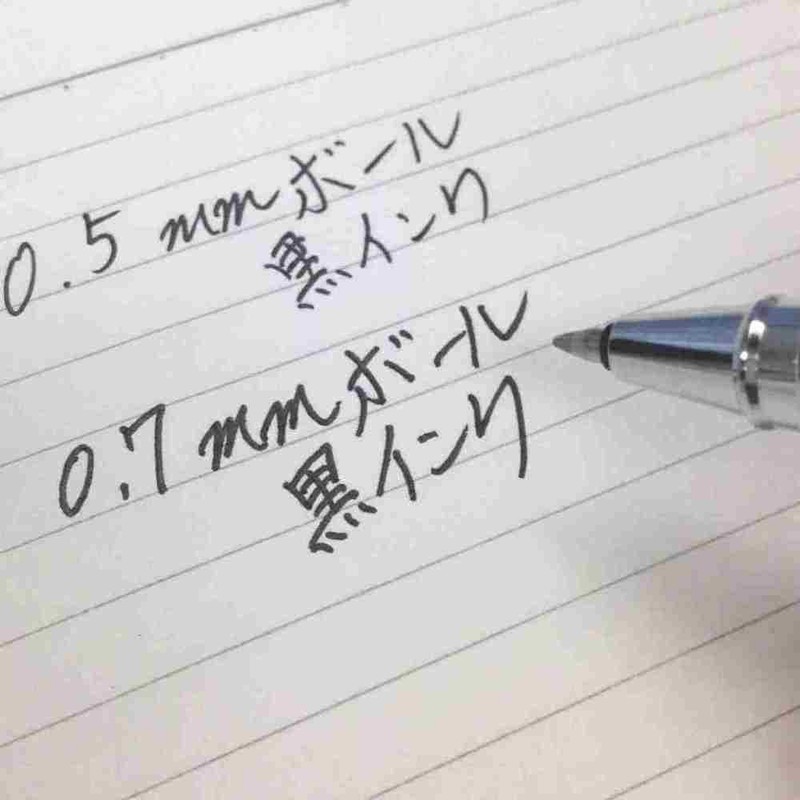 0.5 mmボール
黒インク
0.7 mmボール
黒インク